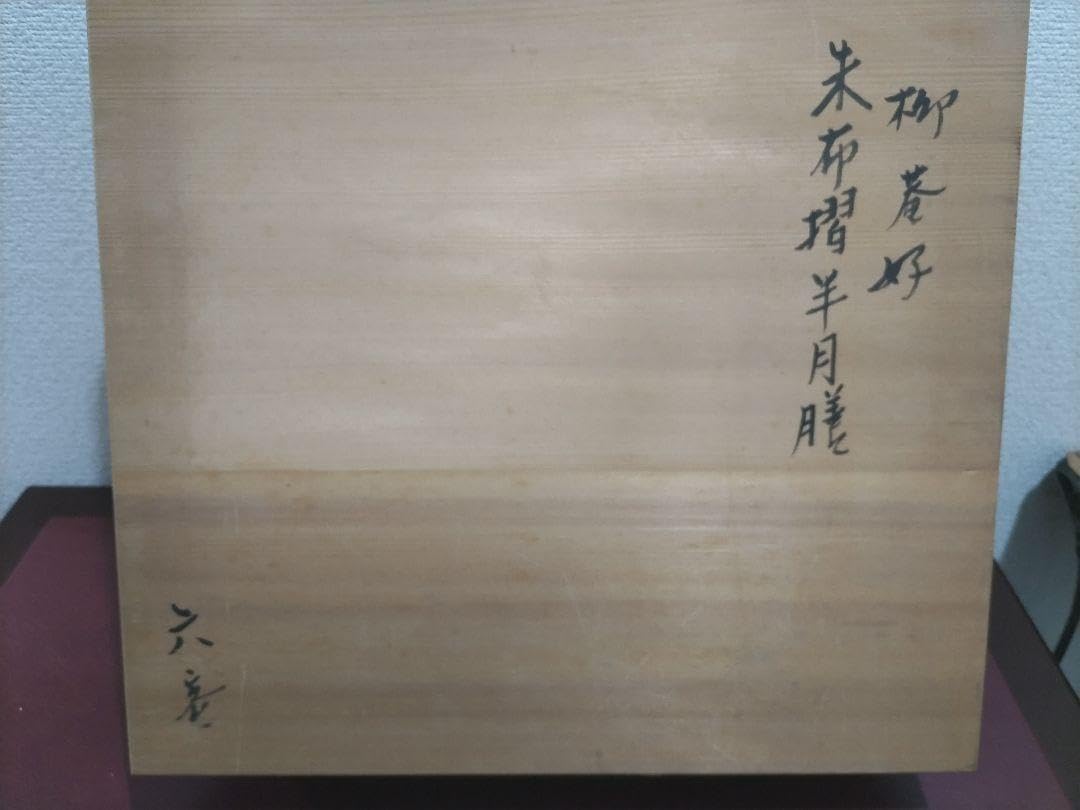 柳菴好
朱布摺半月膳
六客